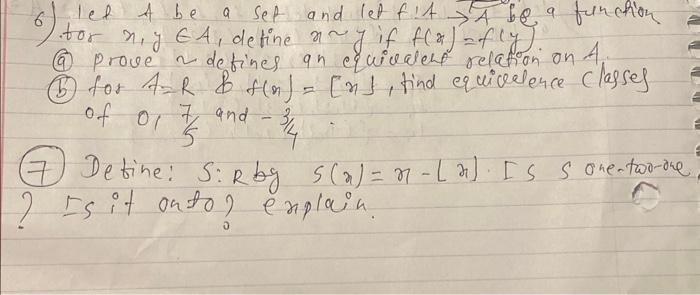 6) let A be a set and let f: A → A be a function
for x, y ∈ A, define x ~ y if f(x) = f(y)
ⓐ prove ~ defines an equivalent relation on A.
ⓑ for A = R & f(x) = ⌊x⌋, find equivalence classes
of 0, 7/5 and -3/4.
⑦ Define: S: R by S(x) = x - ⌊x⌋. Is S one-two-one
? Is it onto? explain.